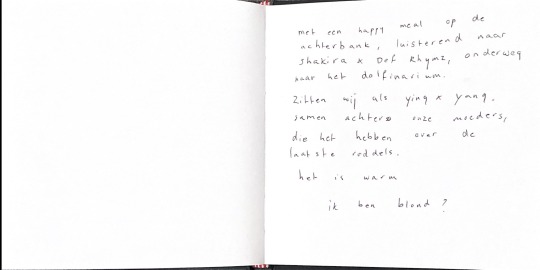 met een happy meal op de
achterbank, luisterend naar
Shakira & Def Rhymz, onderweg
naar het dolfinarium.
Zitten wij als ying & yang.
samen achter onze moeders,
die het hebben over de
laatste roddels.
het is warm
ik ben blond ?